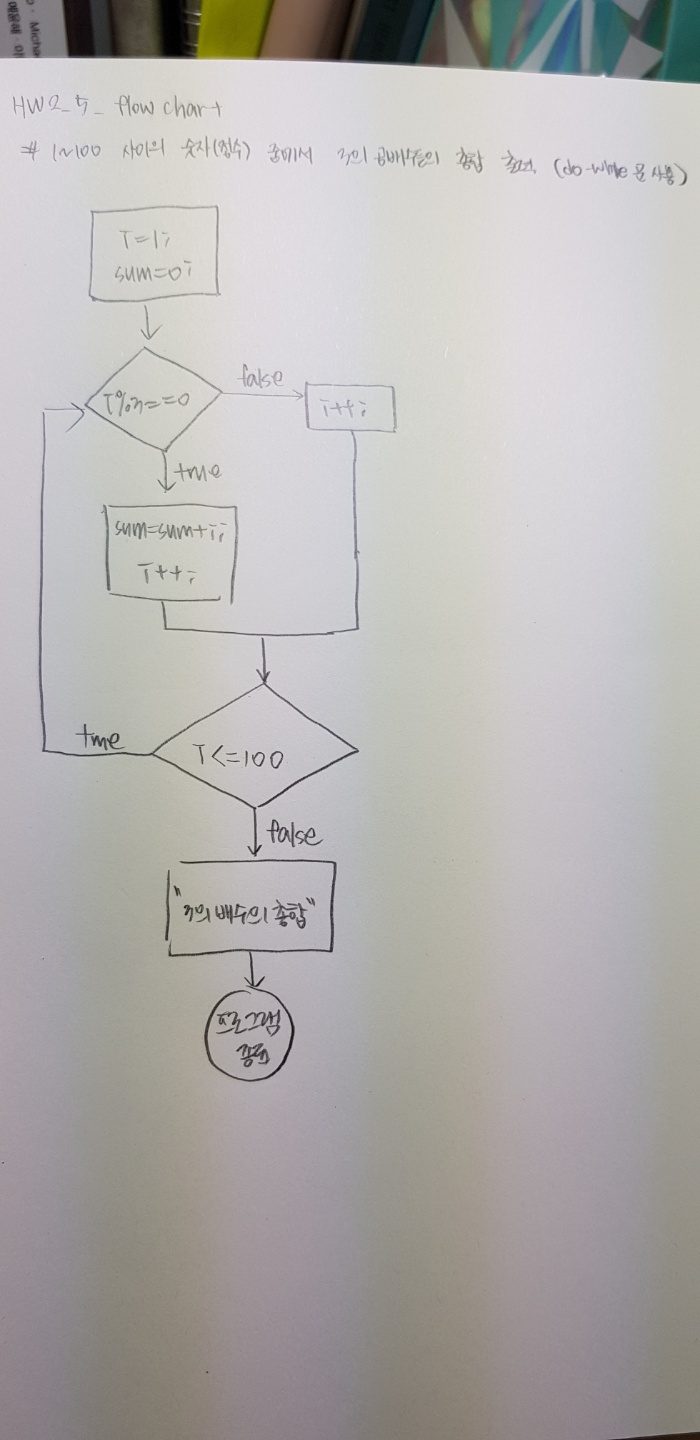 Micha
예문해 · 이
HW2_5_ flow chart
# 1~100 사이의 숫자(정수) 중에서 3의 공배수들의 총합 출력 (do-while 문 사용)
i=1;
sum=0;
i%3==0
false
i++;
true
sum=sum+i;
i++;
true
i<=100
false
"3의 배수의 총합"
프로그램
종료